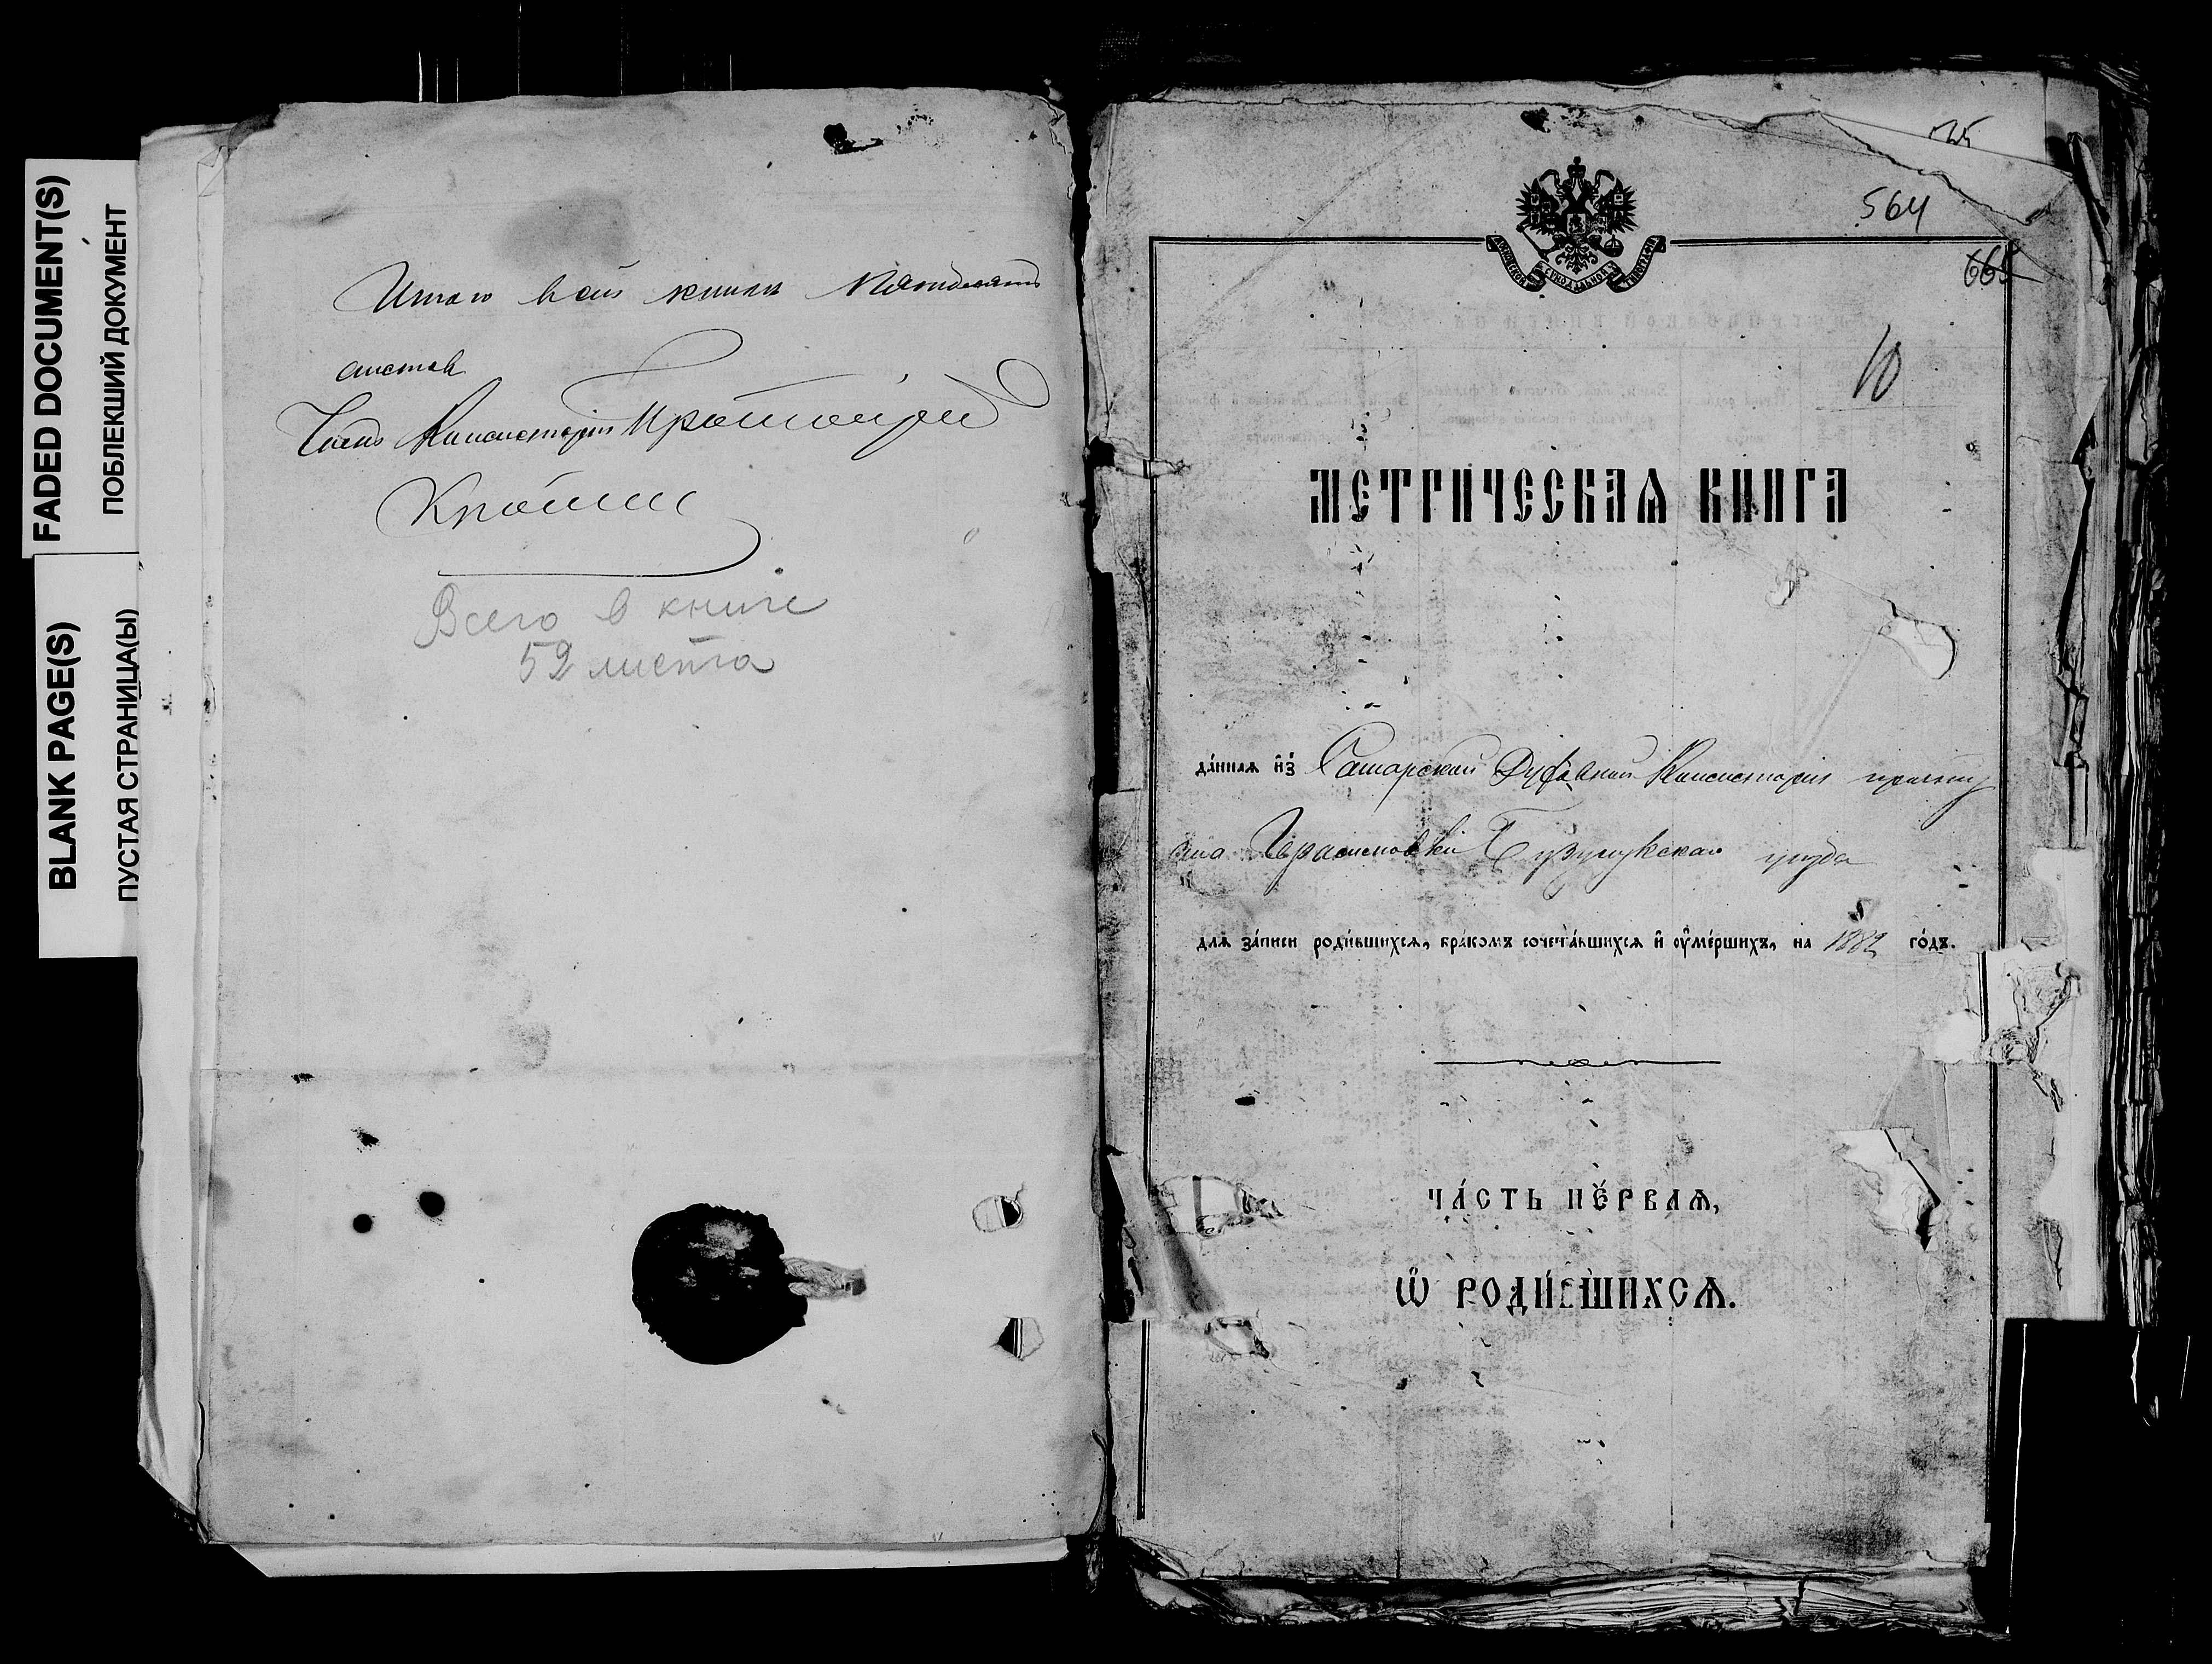 FADED DOCUMENT(S)
ПОБЛЕКШИЙ ДОКУМЕНТ
BLANK PAGE(S)
ПУСТАЯ СТРАНИЦА(Ы)
Итого в сей книги пятьдесятъ
листовъ
Членъ Консисторіи Протоіерей
Всего в книге
52 листа
564
665
10
МЕТРИЧЕСКАѦ КНИГА
да́ннаѧ и҆з̾ Самарской Духовной Консисторіи причту
села Герасимовки Бузулукскаго уѣзда
длѧ за́писи роди́вшихсѧ, бра́комъ сочета́вшихсѧ и҆ ᲂу҆ме́ршихъ, на 1882 го́дъ.
ЧА́СТЬ ПЕ́РВАѦ,
Ѡ҆ РОДИ́ВШИХСѦ.